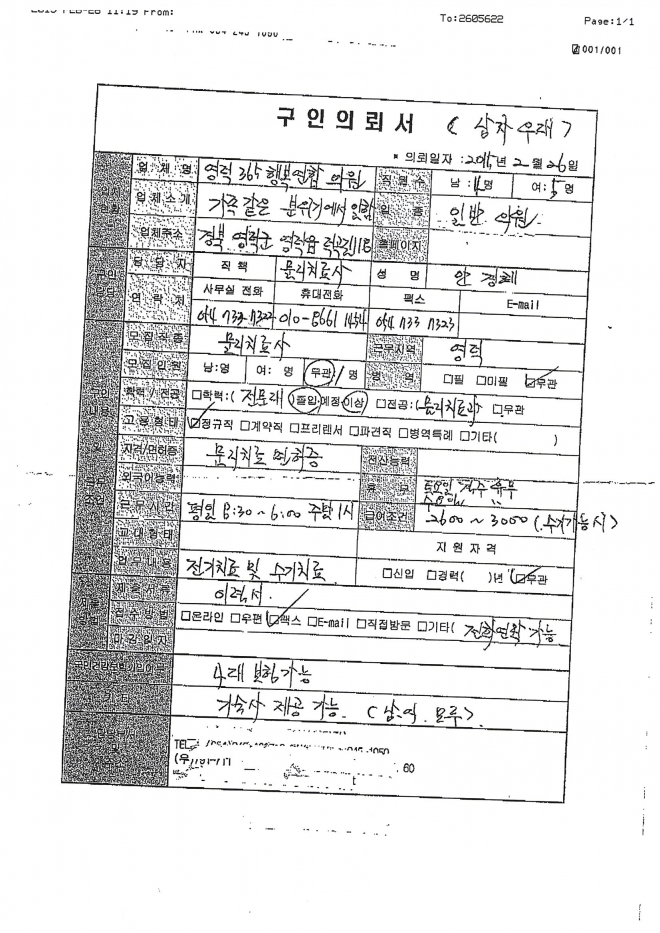 11:19 From:
To:2605622
Page:1/1
001/001
구인의뢰서
* 의뢰일자 : 2015년 2월 26일
업체명 영덕 365 행복연합 의원 직원수 남:4명 여:5명
업체소개 가족 같은 분위기에서 일함 업종 일반 의원
업체주소 경북 영덕군 영덕읍 홈페이지
담당자 직책 물리치료사 성명 안경혜
연락처 사무실 전화 휴대전화 팩스 E-mail
054 733 7322 010-8661 1454 054 733 7323
모집직종 물리치료사 근무지역 영덕
모집인원 남:명 여: 명 무관/ 명 병역 □필 □미필 ☑무관
학력/전공 □학력:(전문대 졸업·예정·이상 □전공:(물리치료과) □무관
고용형태 ☑정규직 □계약직 □프리랜서 □파견직 □병역특례 □기타( )
자격/면허증 물리치료 면허증 전산능력
외국어능력 휴무 토요일 격주 휴무
수요일
근무시간 평일 8:30~6:00 주말 1시 급여조건 2600~3000 (수기가능시)
교대형태 지원자격
업무내용 전기치료 및 수기치료 □신입 □경력( )년 ☑무관
제출서류 이력서
접수방법 □온라인 □우편 ☑팩스 □E-mail □직접방문 □기타( 전화연락 가능
마감일자
4대 보험가능
기타 기숙사 제공 가능. (남.여 모두)
TEL
(우)
60